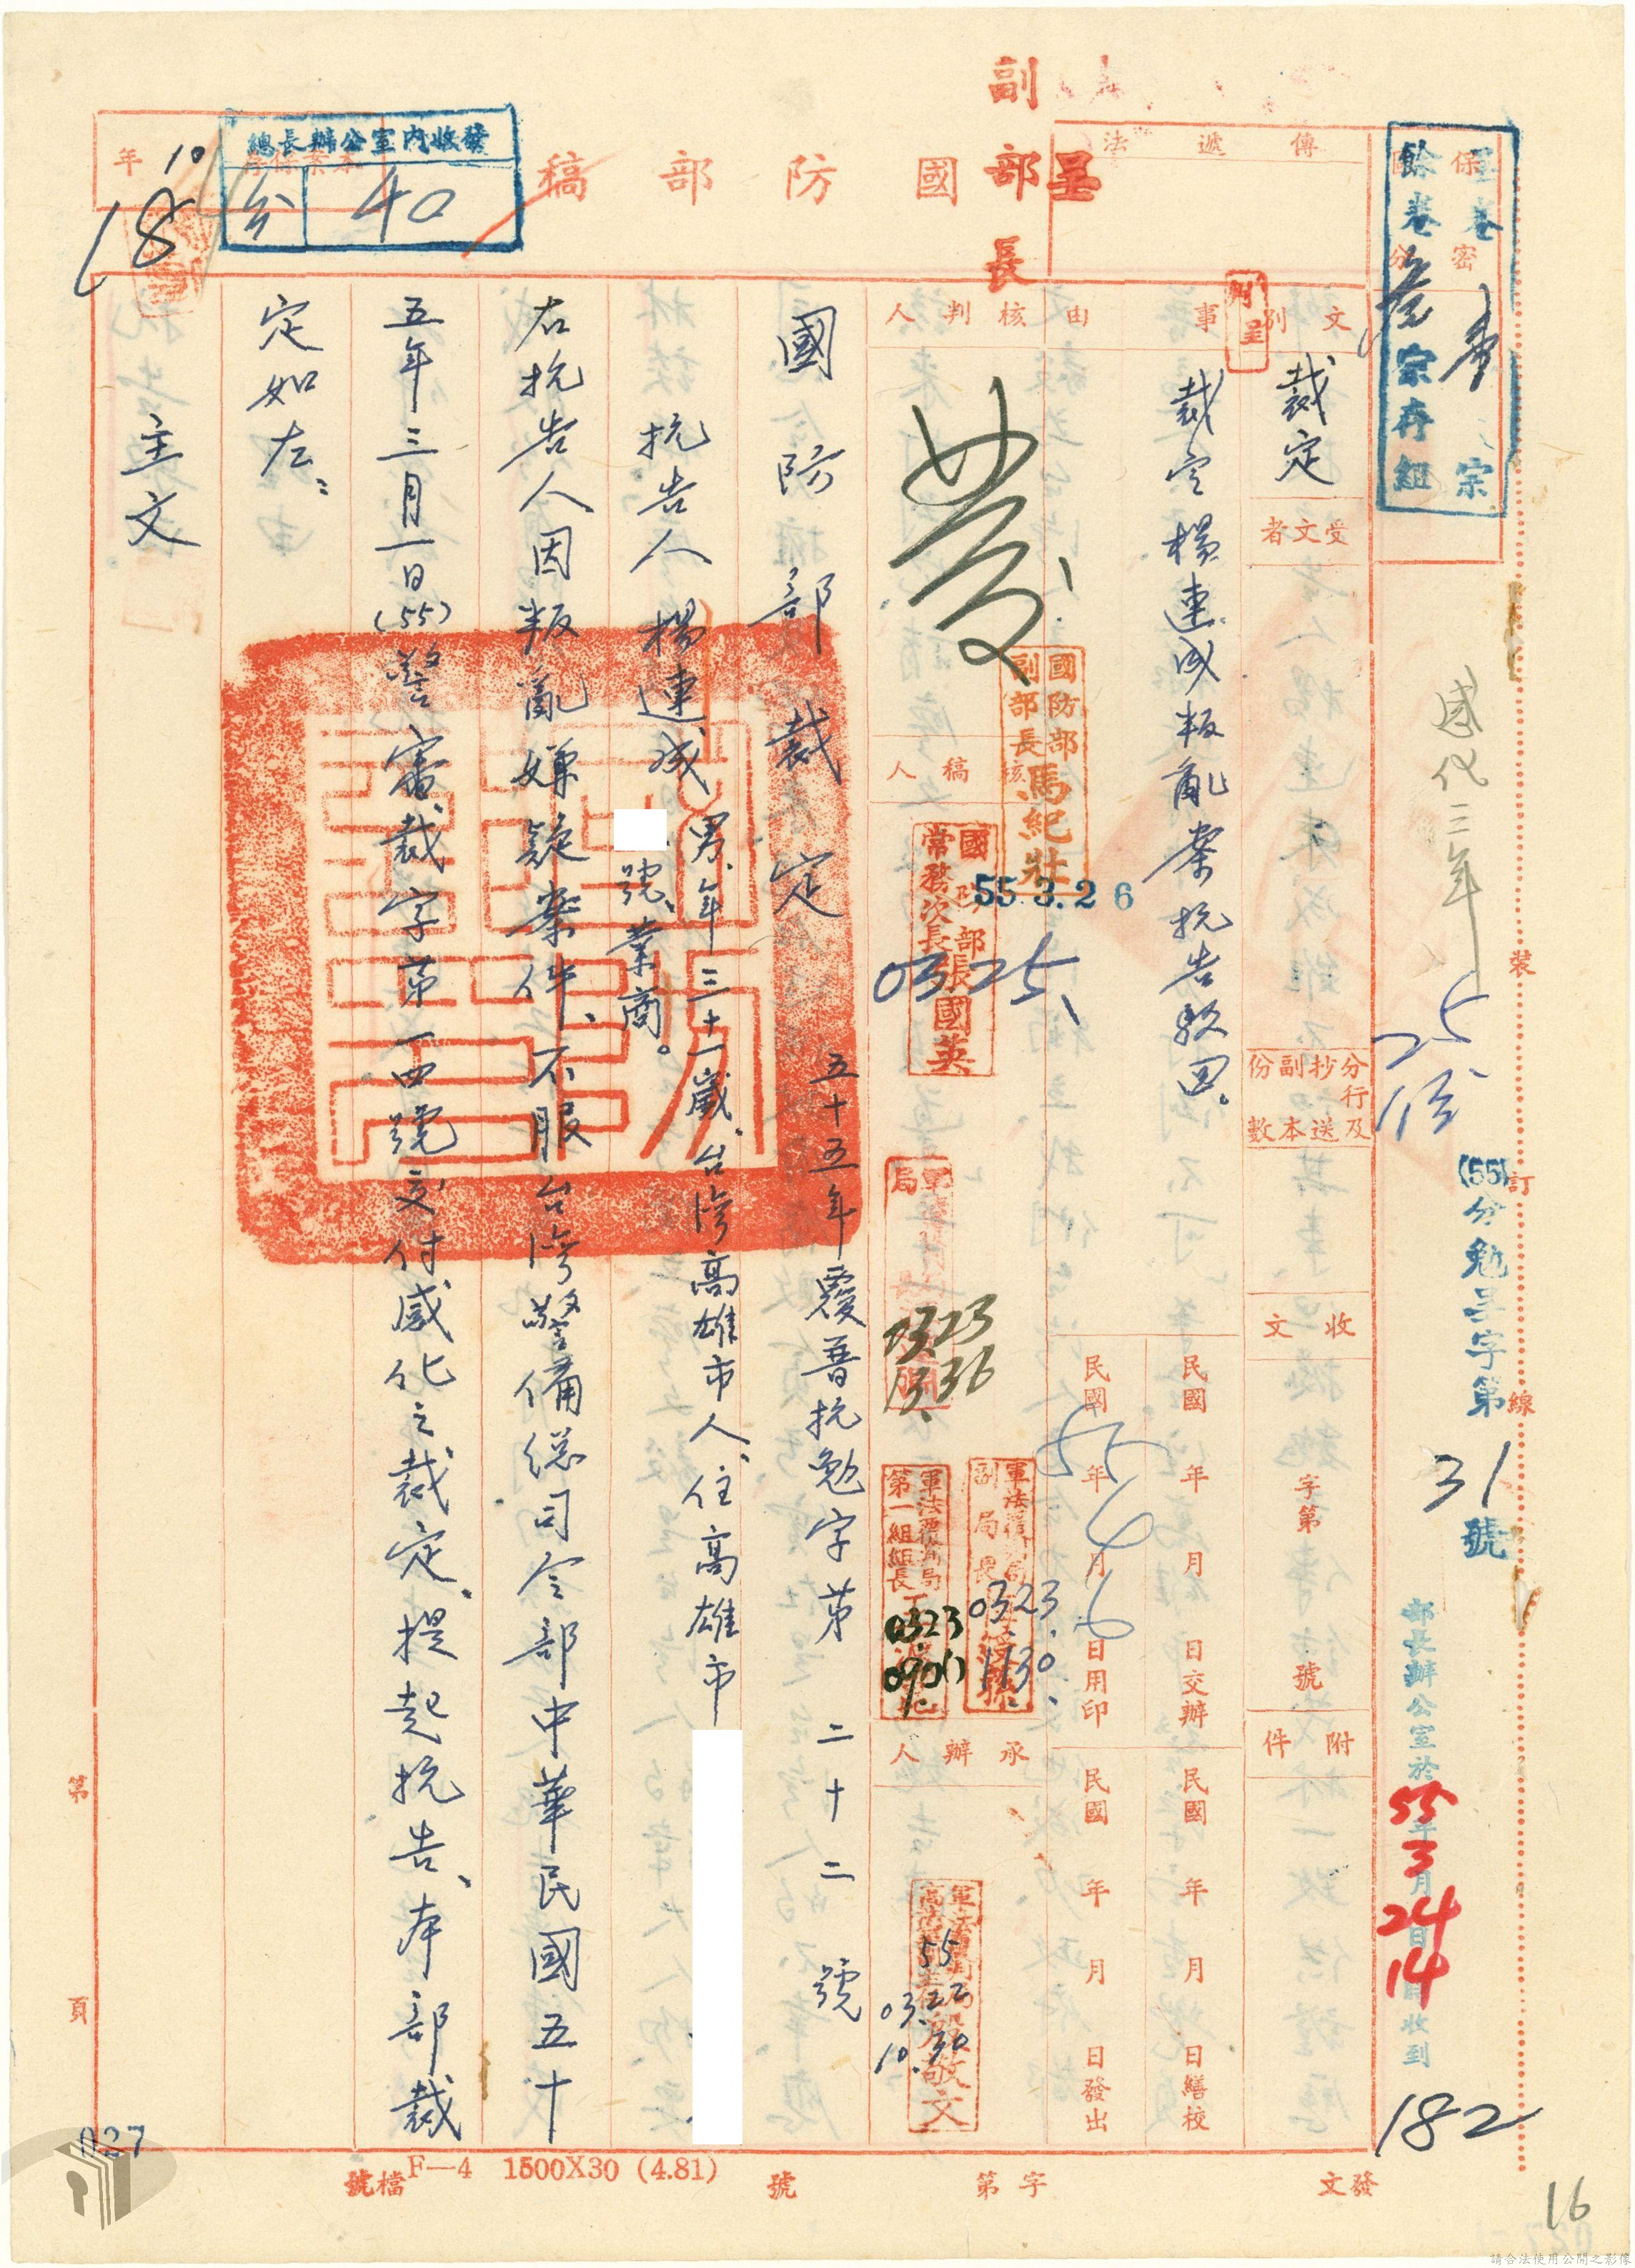 副部長
呈
國防部稿
傳遞法
保密區分
本案保存
年
總長辦公室內收發
分 40
10
18
呈卷壹宗
餘卷宗存組
附呈
文別
裁定
受文者
分行及抄送副本份數
收文
字第
號
附件
事由
裁定楊連成叛亂案抗告駁回。
民國 年 月 日交辦
民國 年 月 日繕校
民國55年4月6日用印
民國 年 月 日發出
核判人
發
國防部副部長馬紀壯
55.3.26
核稿人
國防部常務次長張國英
0325
0323
1336
軍法覆判局副局長
0323
1130
軍法覆判局第一組組長
0323
0900
承辦人
敬文
55
03.22
10.30
感化三年
25份
(55)分勉呈字第31號
部長辦公室於55年3月24日14時收到
182
裝
訂
線
國防部裁定
五十五年覆普抗勉字第二十二號
抗告人 楊連成 男、年三十一歲、台灣高雄市人、住高雄市
號、業商。
右抗告人因叛亂嫌疑案件、不服台灣警備總司令部中華民國五十
五年三月一日(55)警審裁字第一四號交付感化之裁定、提起抗告、本部裁
定如左：
主文
第 頁
027
檔號
F—4 1500X30 (4.81)
發文 字第 號
16
請合法使用公開之影像